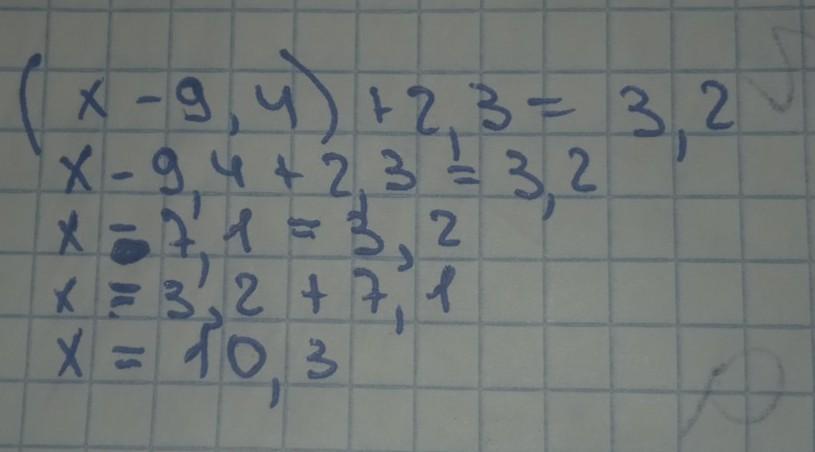 (x - 9,4) + 2,3 = 3,2
x - 9,4 + 2,3 = 3,2
x - 7,1 = 3,2
x = 3,2 + 7,1
x = 10,3